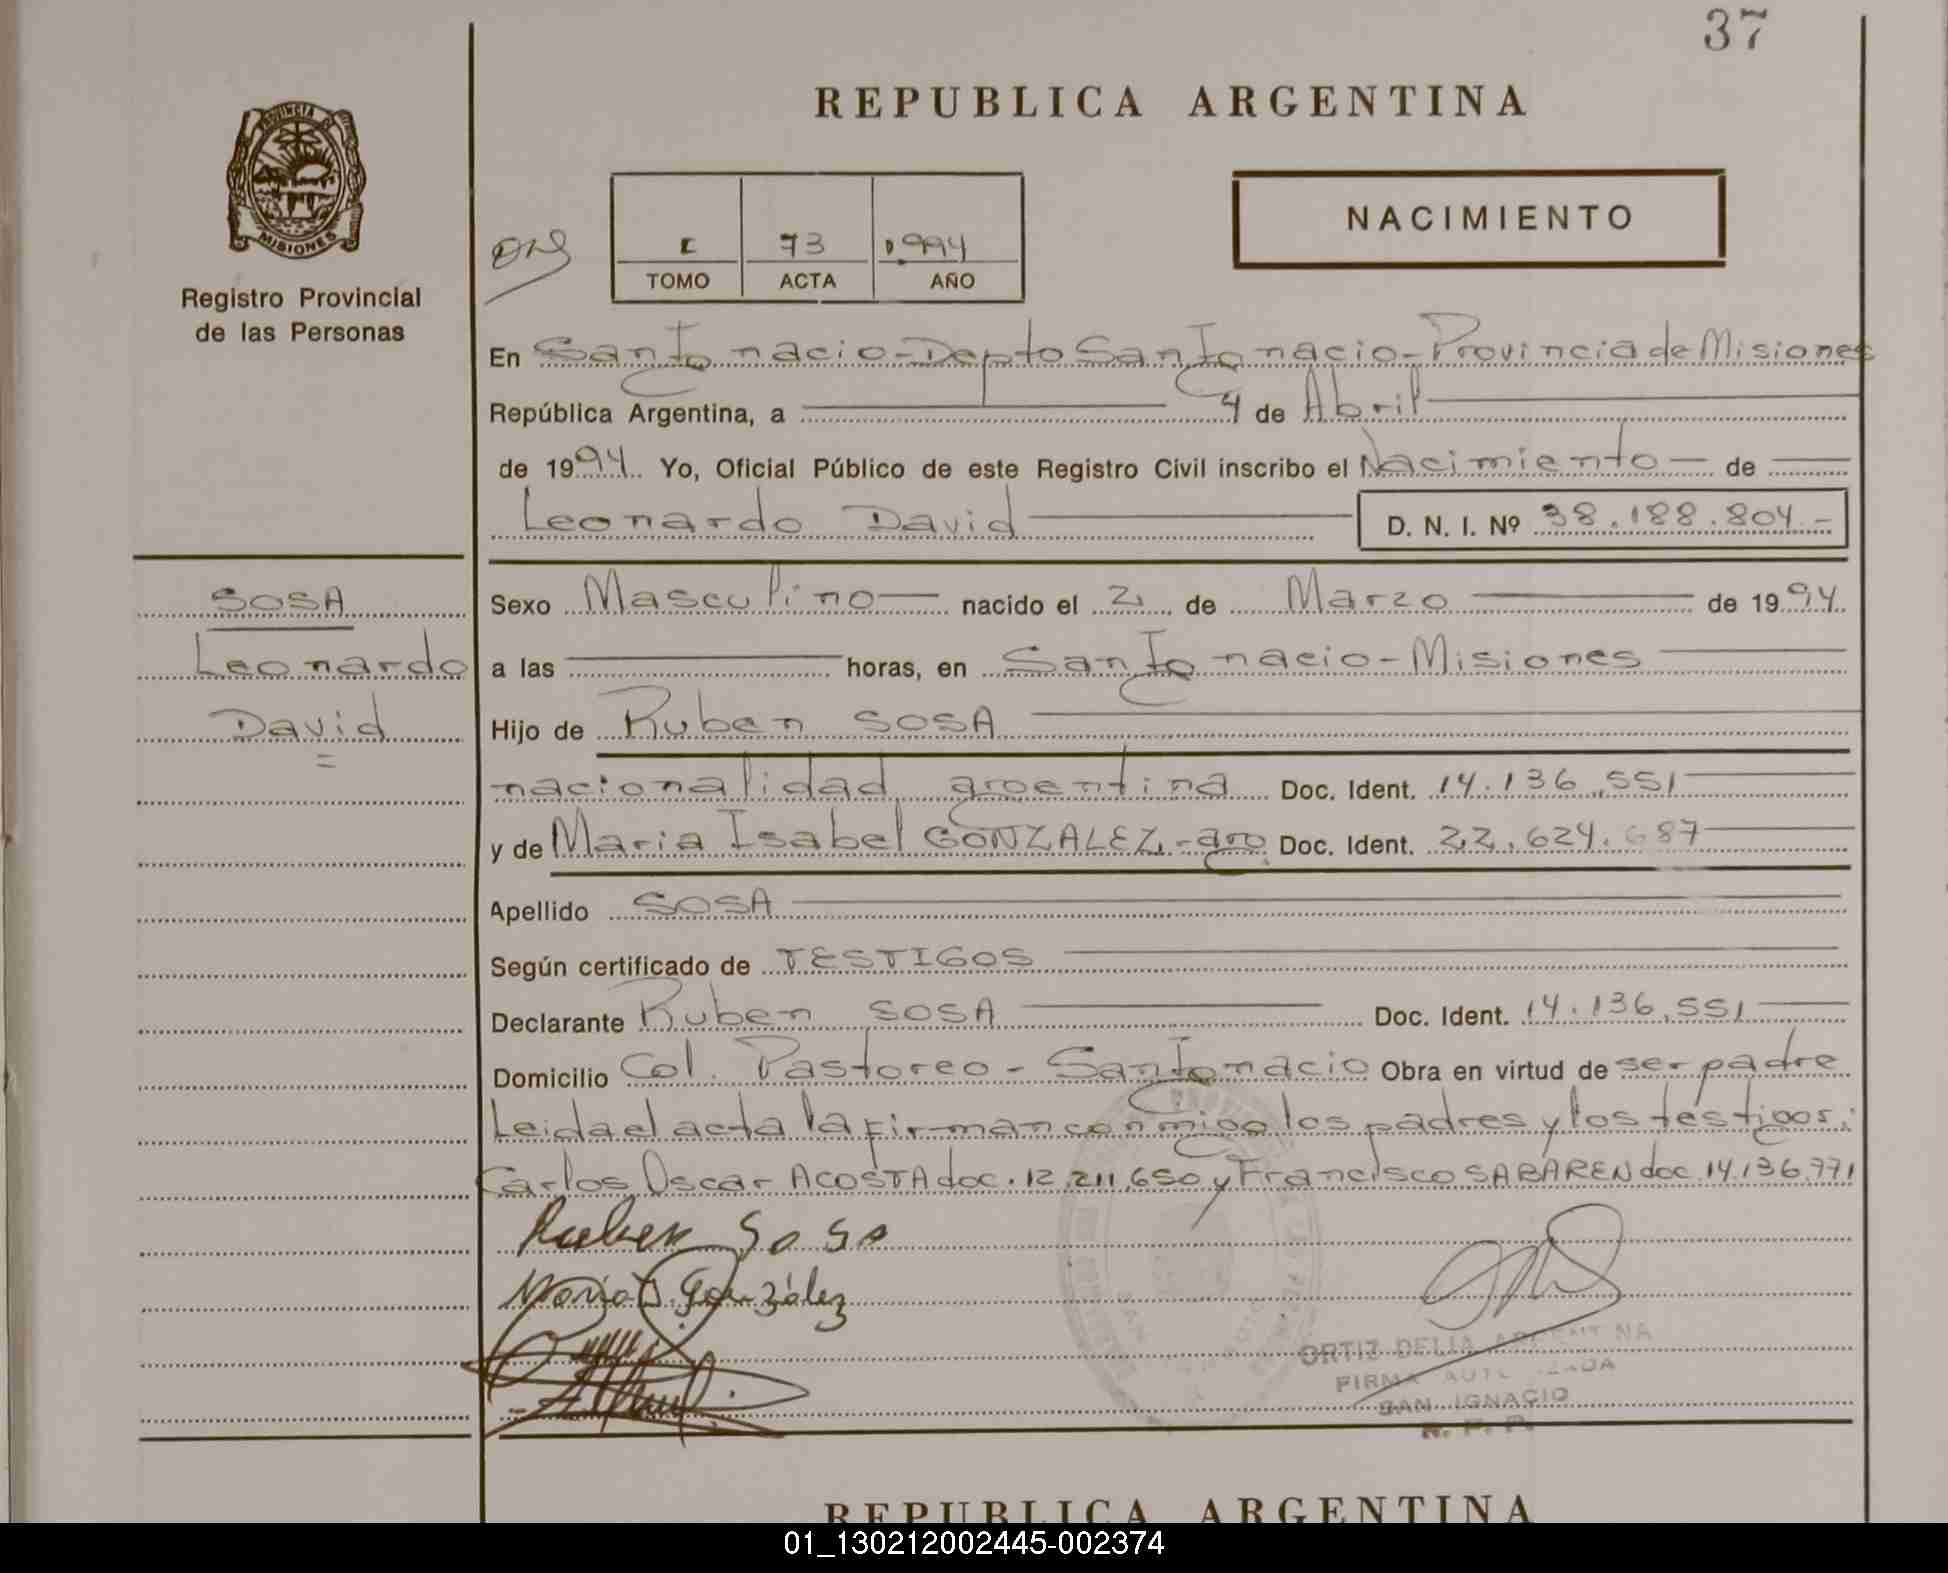 37
REPUBLICA ARGENTINA
PROVINCIA DE
MISIONES
Registro Provincial
de las Personas
NACIMIENTO
I 73 1.994
TOMO ACTA AÑO
En San Ignacio - Depto San Ignacio - Provincia de Misiones
República Argentina, a 4 de Abril
de 1994. Yo, Oficial Público de este Registro Civil inscribo el Nacimiento de
Leonardo David D. N. I. Nº 38.188.804.-
SOSA
Leonardo
David
Sexo Masculino nacido el 2 de Marzo de 1994
a las horas, en San Ignacio - Misiones
Hijo de Ruben SOSA
nacionalidad argentina Doc. Ident. 14.136.551
y de Maria Isabel GONZALEZ.-arg. Doc. Ident. 22.624.687
Apellido SOSA
Según certificado de TESTIGOS
Declarante Ruben SOSA Doc. Ident. 14.136.551
Domicilio Col. Pastoreo - San Ignacio Obra en virtud de ser padre
Leida el acta la firman conmigo los padres y los testigos:
Carlos Oscar ACOSTA doc. 12.211.650 y Francisco SABAREN doc. 14.136.771
Ruben Sosa
Maria I. González
ORTIZ DELIA ARGENTINA
FIRMA AUTORIZADA
SAN IGNACIO
R. P. P.
REPUBLICA ARGENTINA
01_130212002445-002374